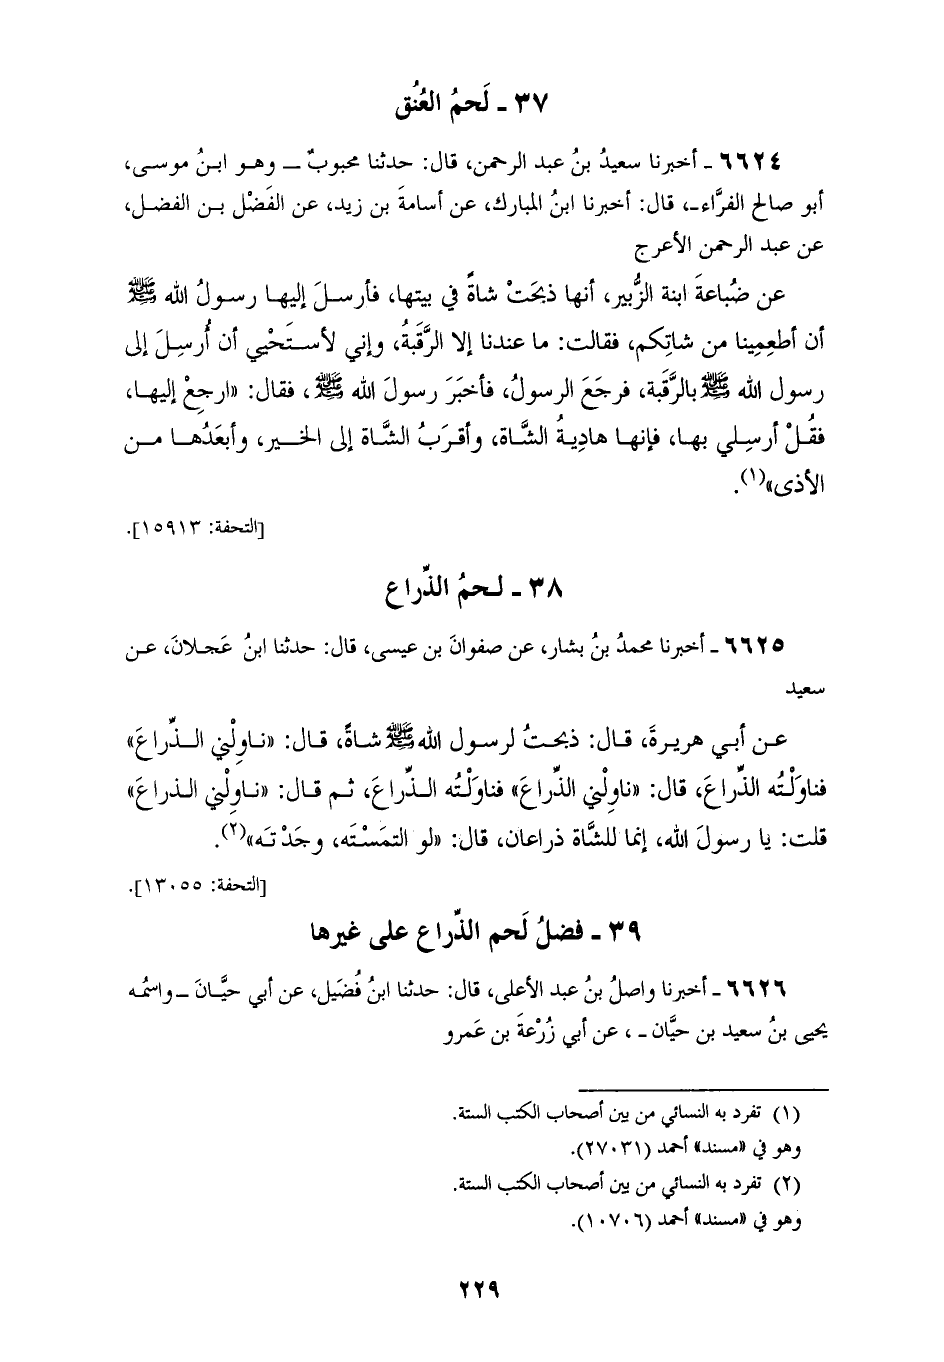 ٣٧ ـ لَحمُ العُنُق
٦٦٢٤ ـ أخبرنا سعيدُ بنُ عبد الرحمن، قال: حدثنا محبوبٌ ــ وهـو ابـنُ موسـى،
أبو صالح الفرَّاء ـ، قال: أخبرنا ابنُ المبارك، عن أسامةَ بن زيد، عن الفَضْل بـن الفضـل،
عن عبد الرحمن الأعرج
عن ضُباعةَ ابنة الزُّبير، أنها ذبَحَتْ شاةً في بيتها، فأرسـلَ إليهـا رسـولُ الله ﷺ
أن أطعِمِينا من شاتِكم، فقالت: ما عندنا إلا الرَّقَبةُ، وإني لأسـتَحْيي أن أُرسِـلَ إلى
رسول الله ﷺ بالرَّقَبة، فرجَعَ الرسولُ، فأخبَرَ رسولَ الله ﷺ، فقال: «ارجِعْ إليهـا،
فقُـلْ أرسِـلي بهـا، فإنهـا هاديـةُ الشَّـاة، وأقـرَبُ الشَّـاة إلى الخـــير، وأبعَدُهـا مــن
الأذى»(١).
[التحفة: ١٥٩١٣].
٣٨ ـ لـحمُ الذِّراع
٦٦٢٥ ـ أخبرنا محمدُ بنُ بشار، عن صفوانَ بن عيسى، قال: حدثنا ابنُ عَجـلانَ، عـن
سعيد
عـن أبـي هريـرةَ، قـال: ذبحـتُ لرسـول الله ﷺ شـاةً، قـال: «نـاوِلْني الـذِّراعَ»
فناوَلْـتُه الذِّراعَ، قال: «ناوِلْني الذِّراعَ» فناوَلْتُه الـذِّراعَ، ثـم قـال: «نـاوِلْني الـذراعَ»
قلت: يا رسولَ الله، إنما للشَّاة ذراعان، قال: «لو التمَسْتَه، وجَدْتَه»(٢).
[التحفة: ١٣٠٥٥].
٣٩ ـ فضلُ لَحم الذِّراع على غيرها
٦٦٢٦ ـ أخبرنا واصلُ بنُ عبد الأعلى، قال: حدثنا ابنُ فُضَيل، عن أبي حيَّـانَ ــ واسمُـه
يحيى بنُ سعيد بن حيَّان ـ ، عن أبي زُرْعةَ بن عَمرو
(١) تفرد به النسائي من بين أصحاب الكتب الستة.
وهو في «مسند» أحمد (٢٧٠٣١).
(٢) تفرد به النسائي من بين أصحاب الكتب الستة.
وهو في «مسند» أحمد (١٠٧٠٦).
٢٢٩